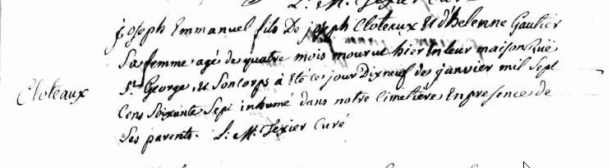 L. M. Texier Curé
joseph Emmanuel fils De joseph Cloteaux et d'helenne Gautier
Sa femme agé de quatre mois mourut hier en leur maison Ruë
St. George, et Son corps à été ce jour Dixneuf de janvier mil Sept
Cloteaux
Cens Soixante Sept inhumé dans notre Cimetière En presence de
Ses parents. L. M. Texier Curé